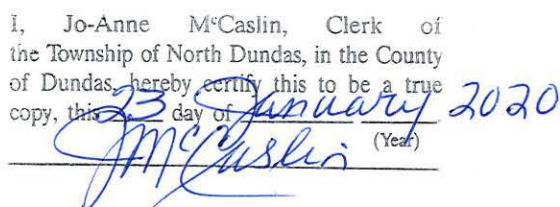 I, Jo-Anne McCaslin, Clerk of
the Township of North Dundas, in the County
of Dundas, hereby certify this to be a true
copy, this 23 day of January 2020
(Year)
JMcCaslin